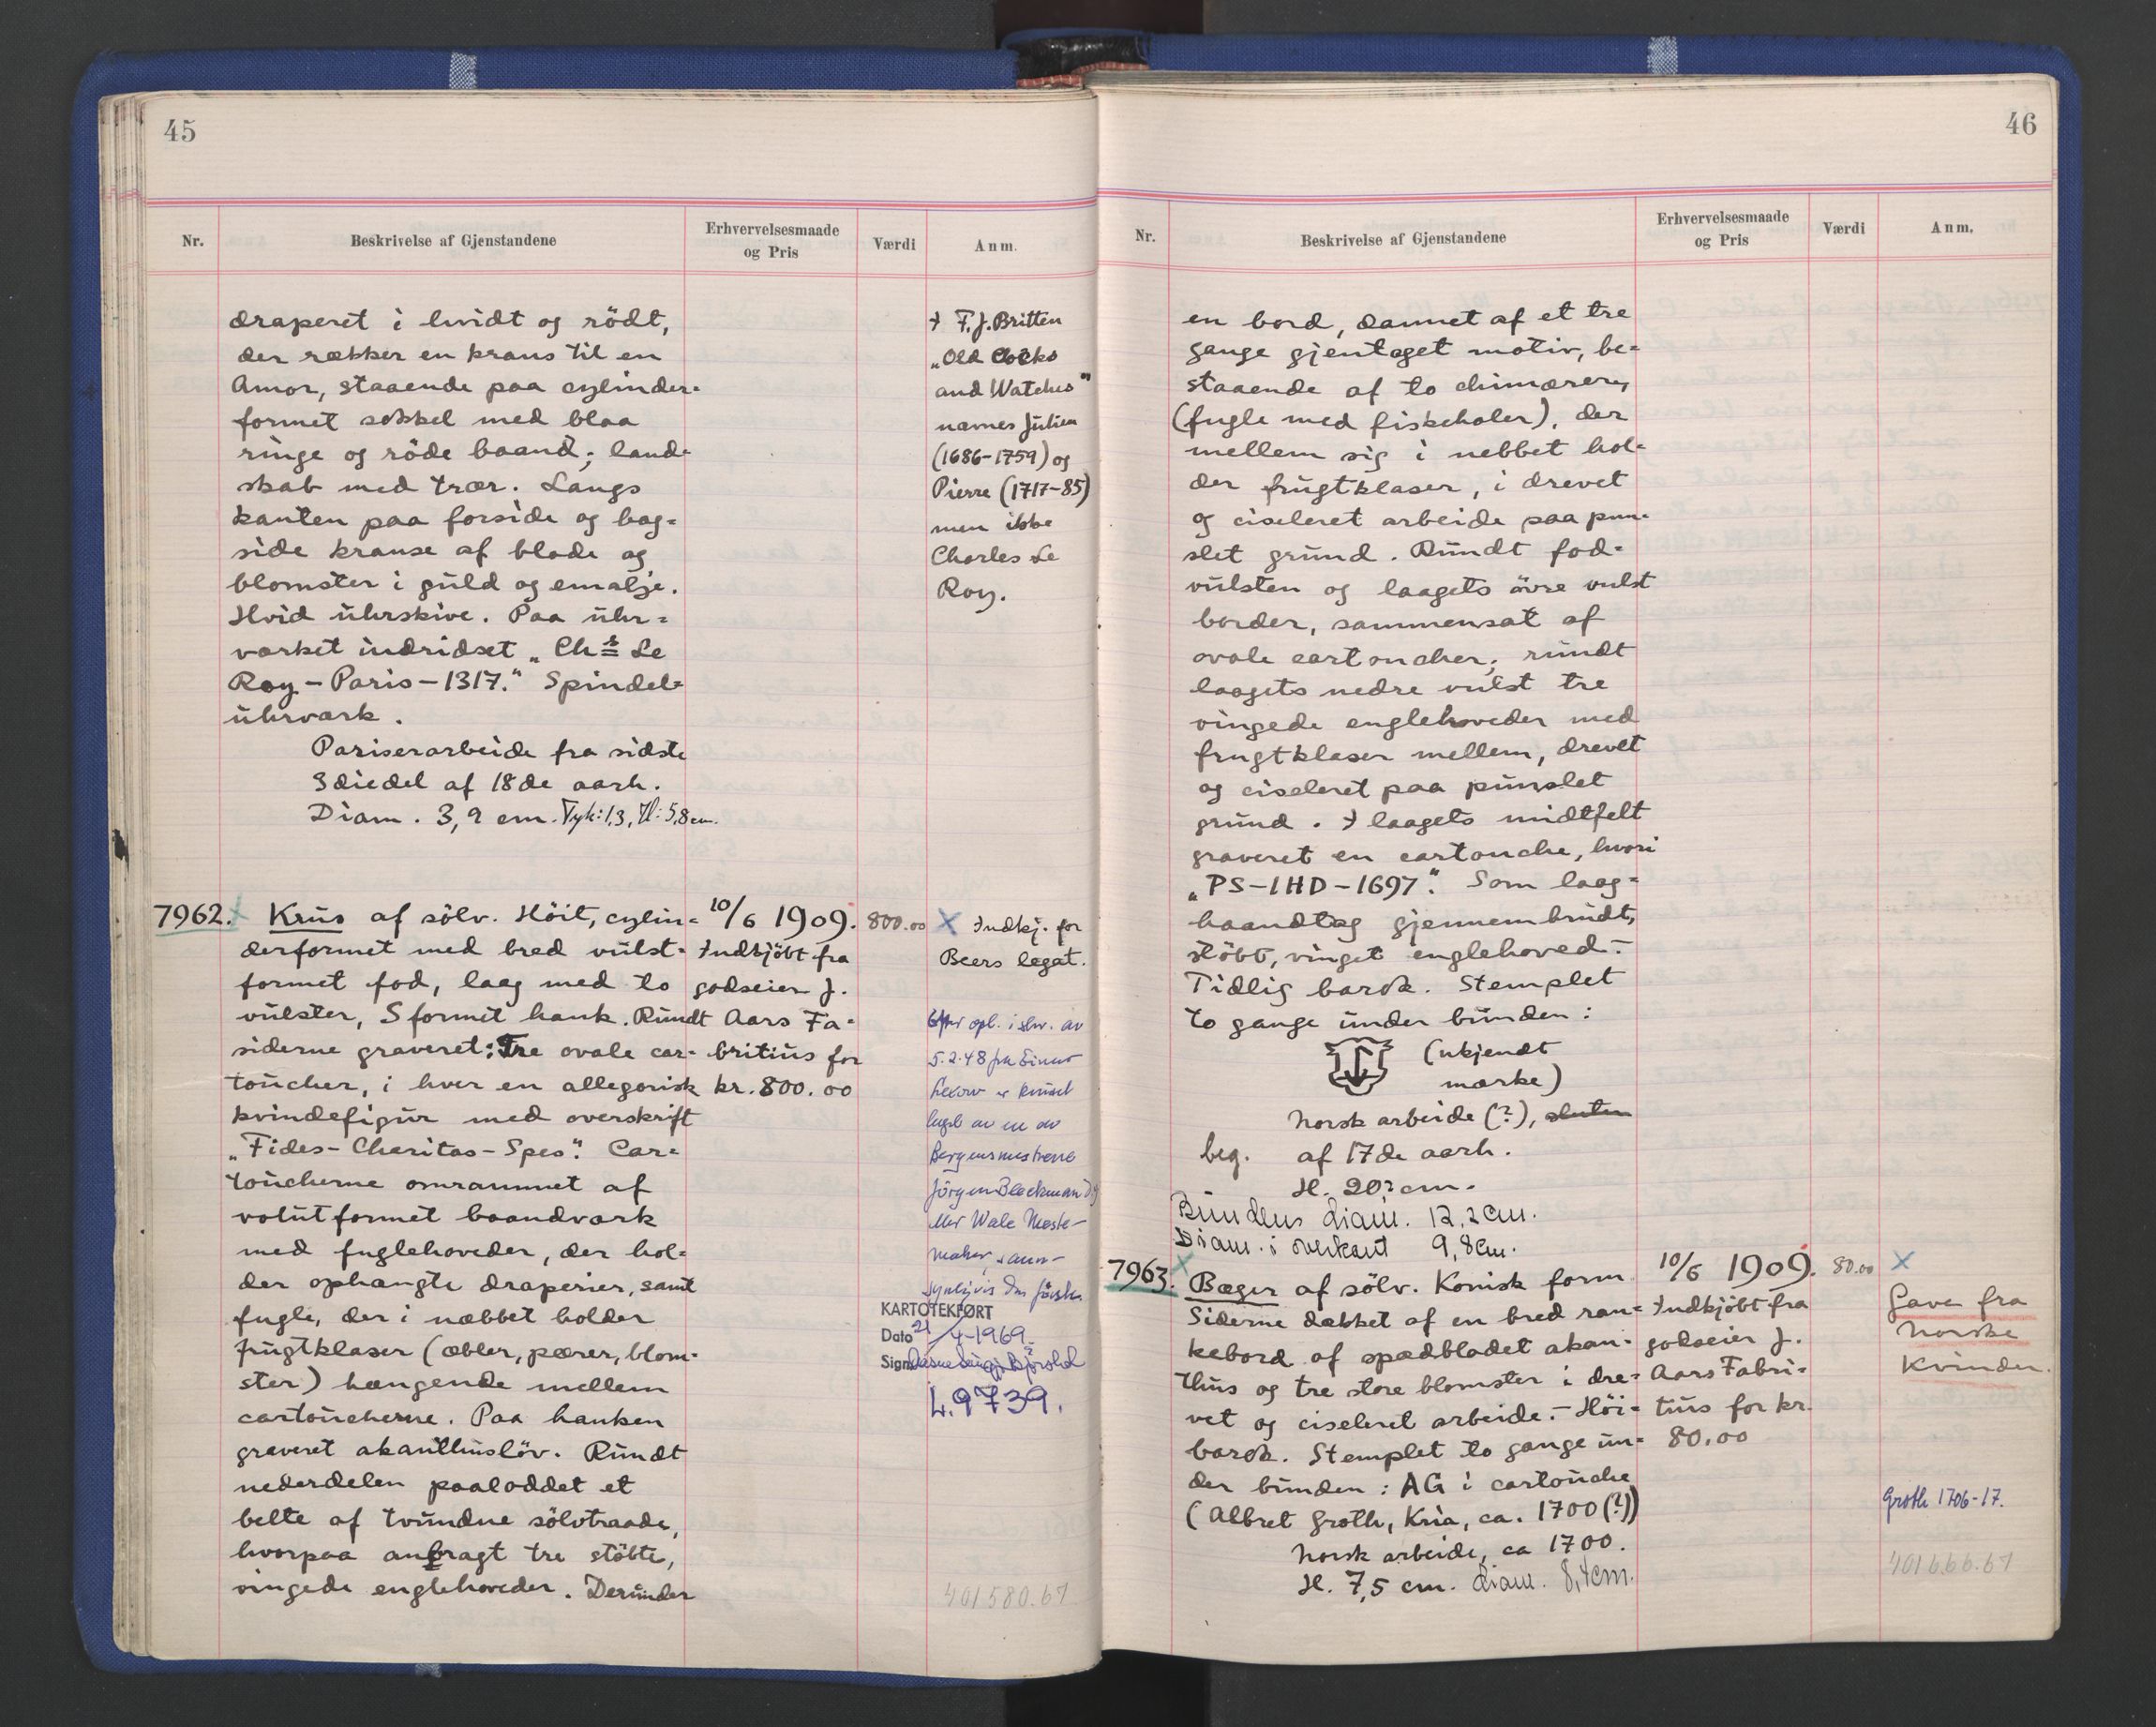 45
Nr.
Beskrivelse af Gjenstandene
Erhvervelsesmaade
og Pris
Værdi
Anm.
draperet i hvidt og rödt,
der rækker en krans til en
Amor, staaende paa cylinder-
formet sokkel med blaa
ringe og röde baand; land-
skab med trær. Langs
kanten paa forside og bag-
side kranse af blade og
blomster i guld og emalje.
Hvid uhrskive. Paa uhr-
værket indridset „Chs Le
Roy – Paris – 1317." Spindel-
uhrværk.
Pariserarbeide fra sidste
3diedel af 18de aarh.
Diam. 3,9 cm. Tyk: 1,3, H: 5,8 cm.
I F. J. Britten
„Old Clocks
and Watches"
nævnes Julien
(1686-1759) og
Pierre (1717-85)
men ikke
Charles Le
Roy.
7962.
Krus af sölv. Höit, cylin-
derformet med bred vulst-
formet fod, laag med to
vulster, S formet hank. Rundt
siderne graveret: Tre ovale car-
toucher, i hver en allegorisk
kvindefigur med overskrift
„Fides – Charitas – Spes". Car-
toucherne omrammet af
volutformet baandværk
med fuglehoveder, der hol-
der ophængte draperier, samt
fugle, der i næbbet holder
frugtklaser (æbler, pærer, blom-
ster) hængende mellem
cartoucherne. Paa hanken
graveret akanthuslöv. Rundt
nederdelen paaloddet et
belte af tvundne sölvtraade,
hvorpaa anbragt tre stöbte,
vingede englehoveder. Derunder
10/6 1909.
Indkjöbt fra
godseier J.
Aars Fa-
britius for
kr. 800.00
800.00
X Indkj. for
Beers legat.
Efter opl. i skr. av
5.2.48 fra Einar
Lexow er kruset
lagd av en av
Bergensmestrene
Jörgen Blackman d.y.
eller Wale Meste-
maker, sann-
synligvis den förste
KARTOTEKFØRT
Dato 21/4-1969.
Sign.
L. 9739.
401580.67
46
Nr.
Beskrivelse af Gjenstandene
Erhvervelsesmaade
og Pris
Værdi
Anm.
en bord, dannet af et tre
gange gjentaget motiv, be-
staaende af to chimærer,
(fugle med fiskehaler), der
mellem sig i nebbet hol-
der frugtklaser, i drevet
og ciseleret arbeide paa pun-
slet grund. Rundt fod-
vulsten og laagets övre vulst
border, sammensat af
ovale cartoucher; rundt
laagets nedre vulst tre
vingede englehoveder med
frugtklaser mellem, drevet
og ciseleret paa punslet
grund. I laagets midtfelt
graveret en cartouche, hvori
„PS – IHD – 1697". Som laag-
haandtag gjennembrudt,
stöbt, vinget englehoved. –
Tidlig barok. Stemplet
to gange under bunden:
(ukjendt
mærke)
Norsk arbeide (?), slutten
beg. af 17de aarh.
H. 20,2 cm.
Bundens diam. 12,2 cm.
Diam. i overkant 9,8 cm.
7963.
Bæger af sölv. Konisk form.
Siderne dækket af en bred ran-
kebord af spædbladet akan-
thus og tre store blomster i dre-
vet og ciseleret arbeide. – Höi-
barok. Stemplet to gange un-
der bunden: AG i cartouche
(Albret Groth, Kria, ca. 1700 (?))
Norsk arbeide, ca 1700.
H. 7,5 cm. Diam. 8,4 cm.
10/6 1909.
Indkjöbt fra
godseier J.
Aars Fabri-
tius for kr.
80.00
80.00
X
Gave fra
Norske
Kvinder.
Groth 1706-17.
401666.67